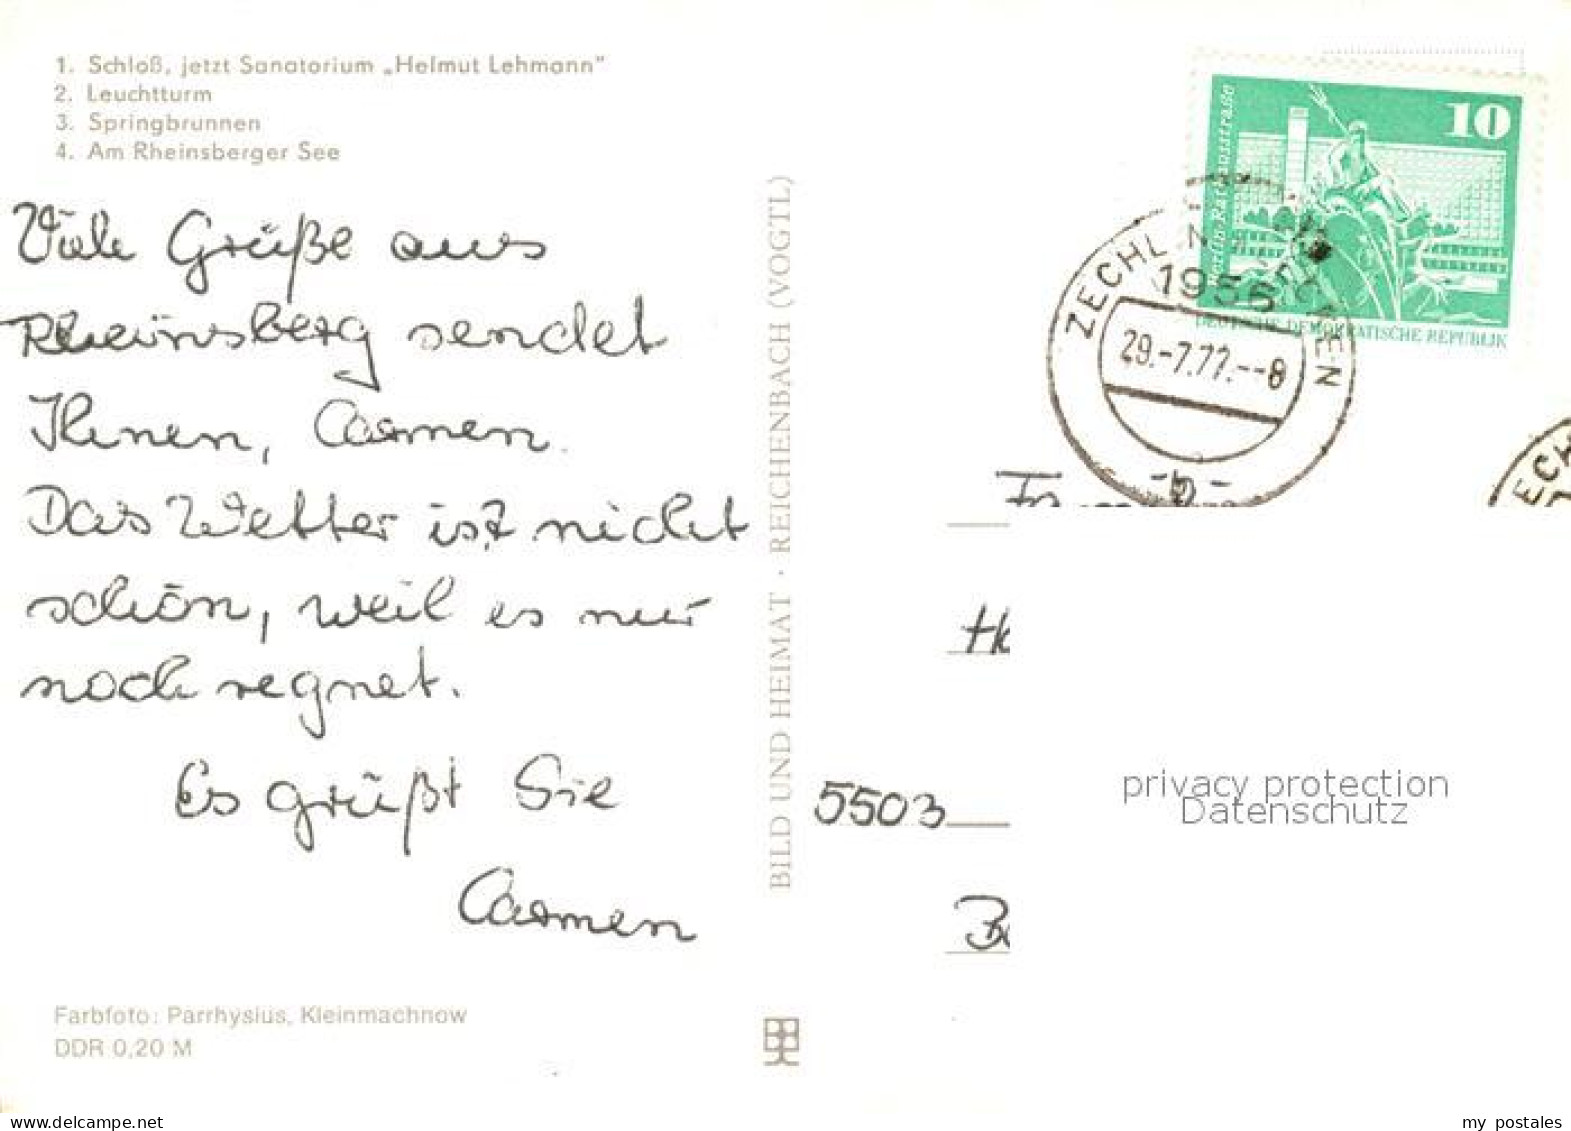 1. Schloß, jetzt Sanatorium „Helmut Lehmann"
2. Leuchtturm
3. Springbrunnen
4. Am Rheinsberger See
Viele Grüße aus
Rheinsberg sendet
Ihnen, Carmen.
Das Wetter ist nicht
schön, weil es nur
noch regnet.
Es grüßt Sie
Carmen
Farbfoto: Parrhysius, Kleinmachnow
DDR 0,20 M
BILD UND HEIMAT · REICHENBACH (VOGTL)
10
Berlin Rathausstraße
DEUTSCHE DEMOKRATISCHE REPUBLIK
ZECHLIN
1956
29.-7.77.--8
-b-
ECH
5503
privacy protection
Datenschutz
www.delcampe.net
my_postales